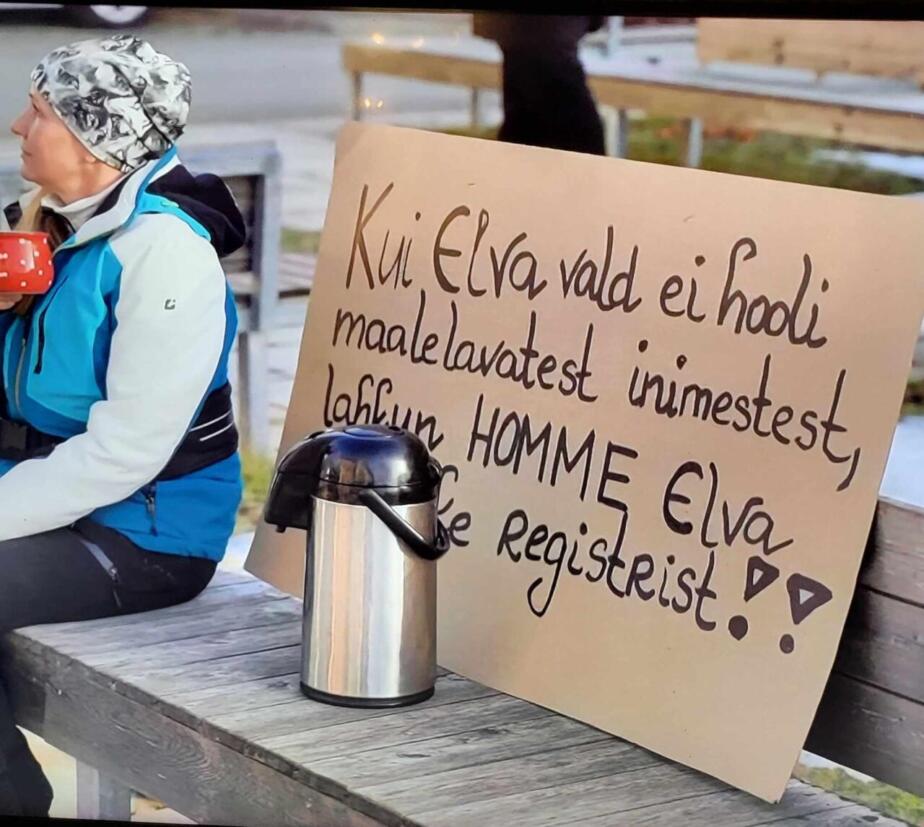 Kui Elva vald ei hooli
maalelavatest inimestest,
lahkun HOMME Elva
registrist!!